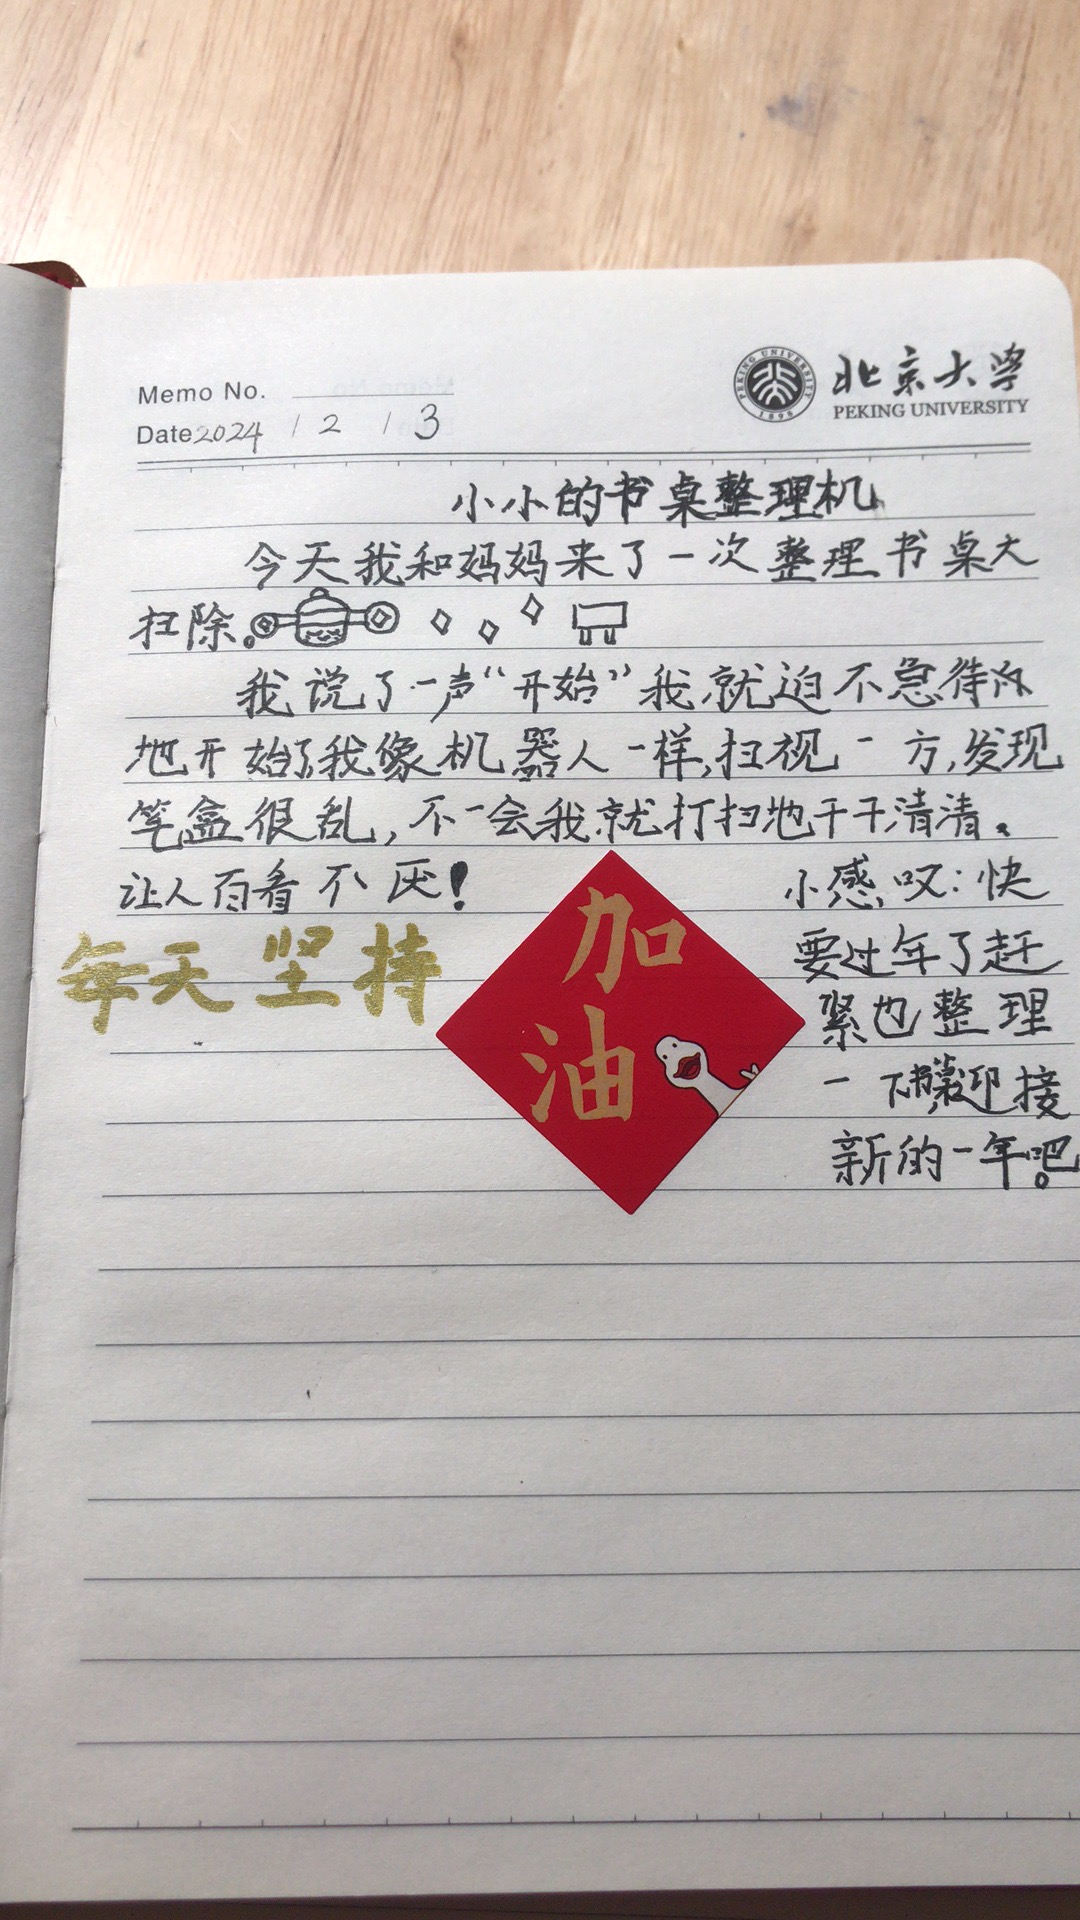 Memo No.
Date 2024 / 2 / 3
PEKING UNIVERSITY
1898
北京大学
PEKING UNIVERSITY
小小的书桌整理机
今天我和妈妈来了一次整理书桌大
扫除。
我说了一声“开始”我就迫不急待
地开始了我像机器人一样,扫视一方,发现
笔盒很乱,不一会我就打扫地干干清清。
让人百看不厌!
小感叹:快
要过年了赶
紧也整理
一下书桌,迎接
新的一年吧。
每天坚持
加
油